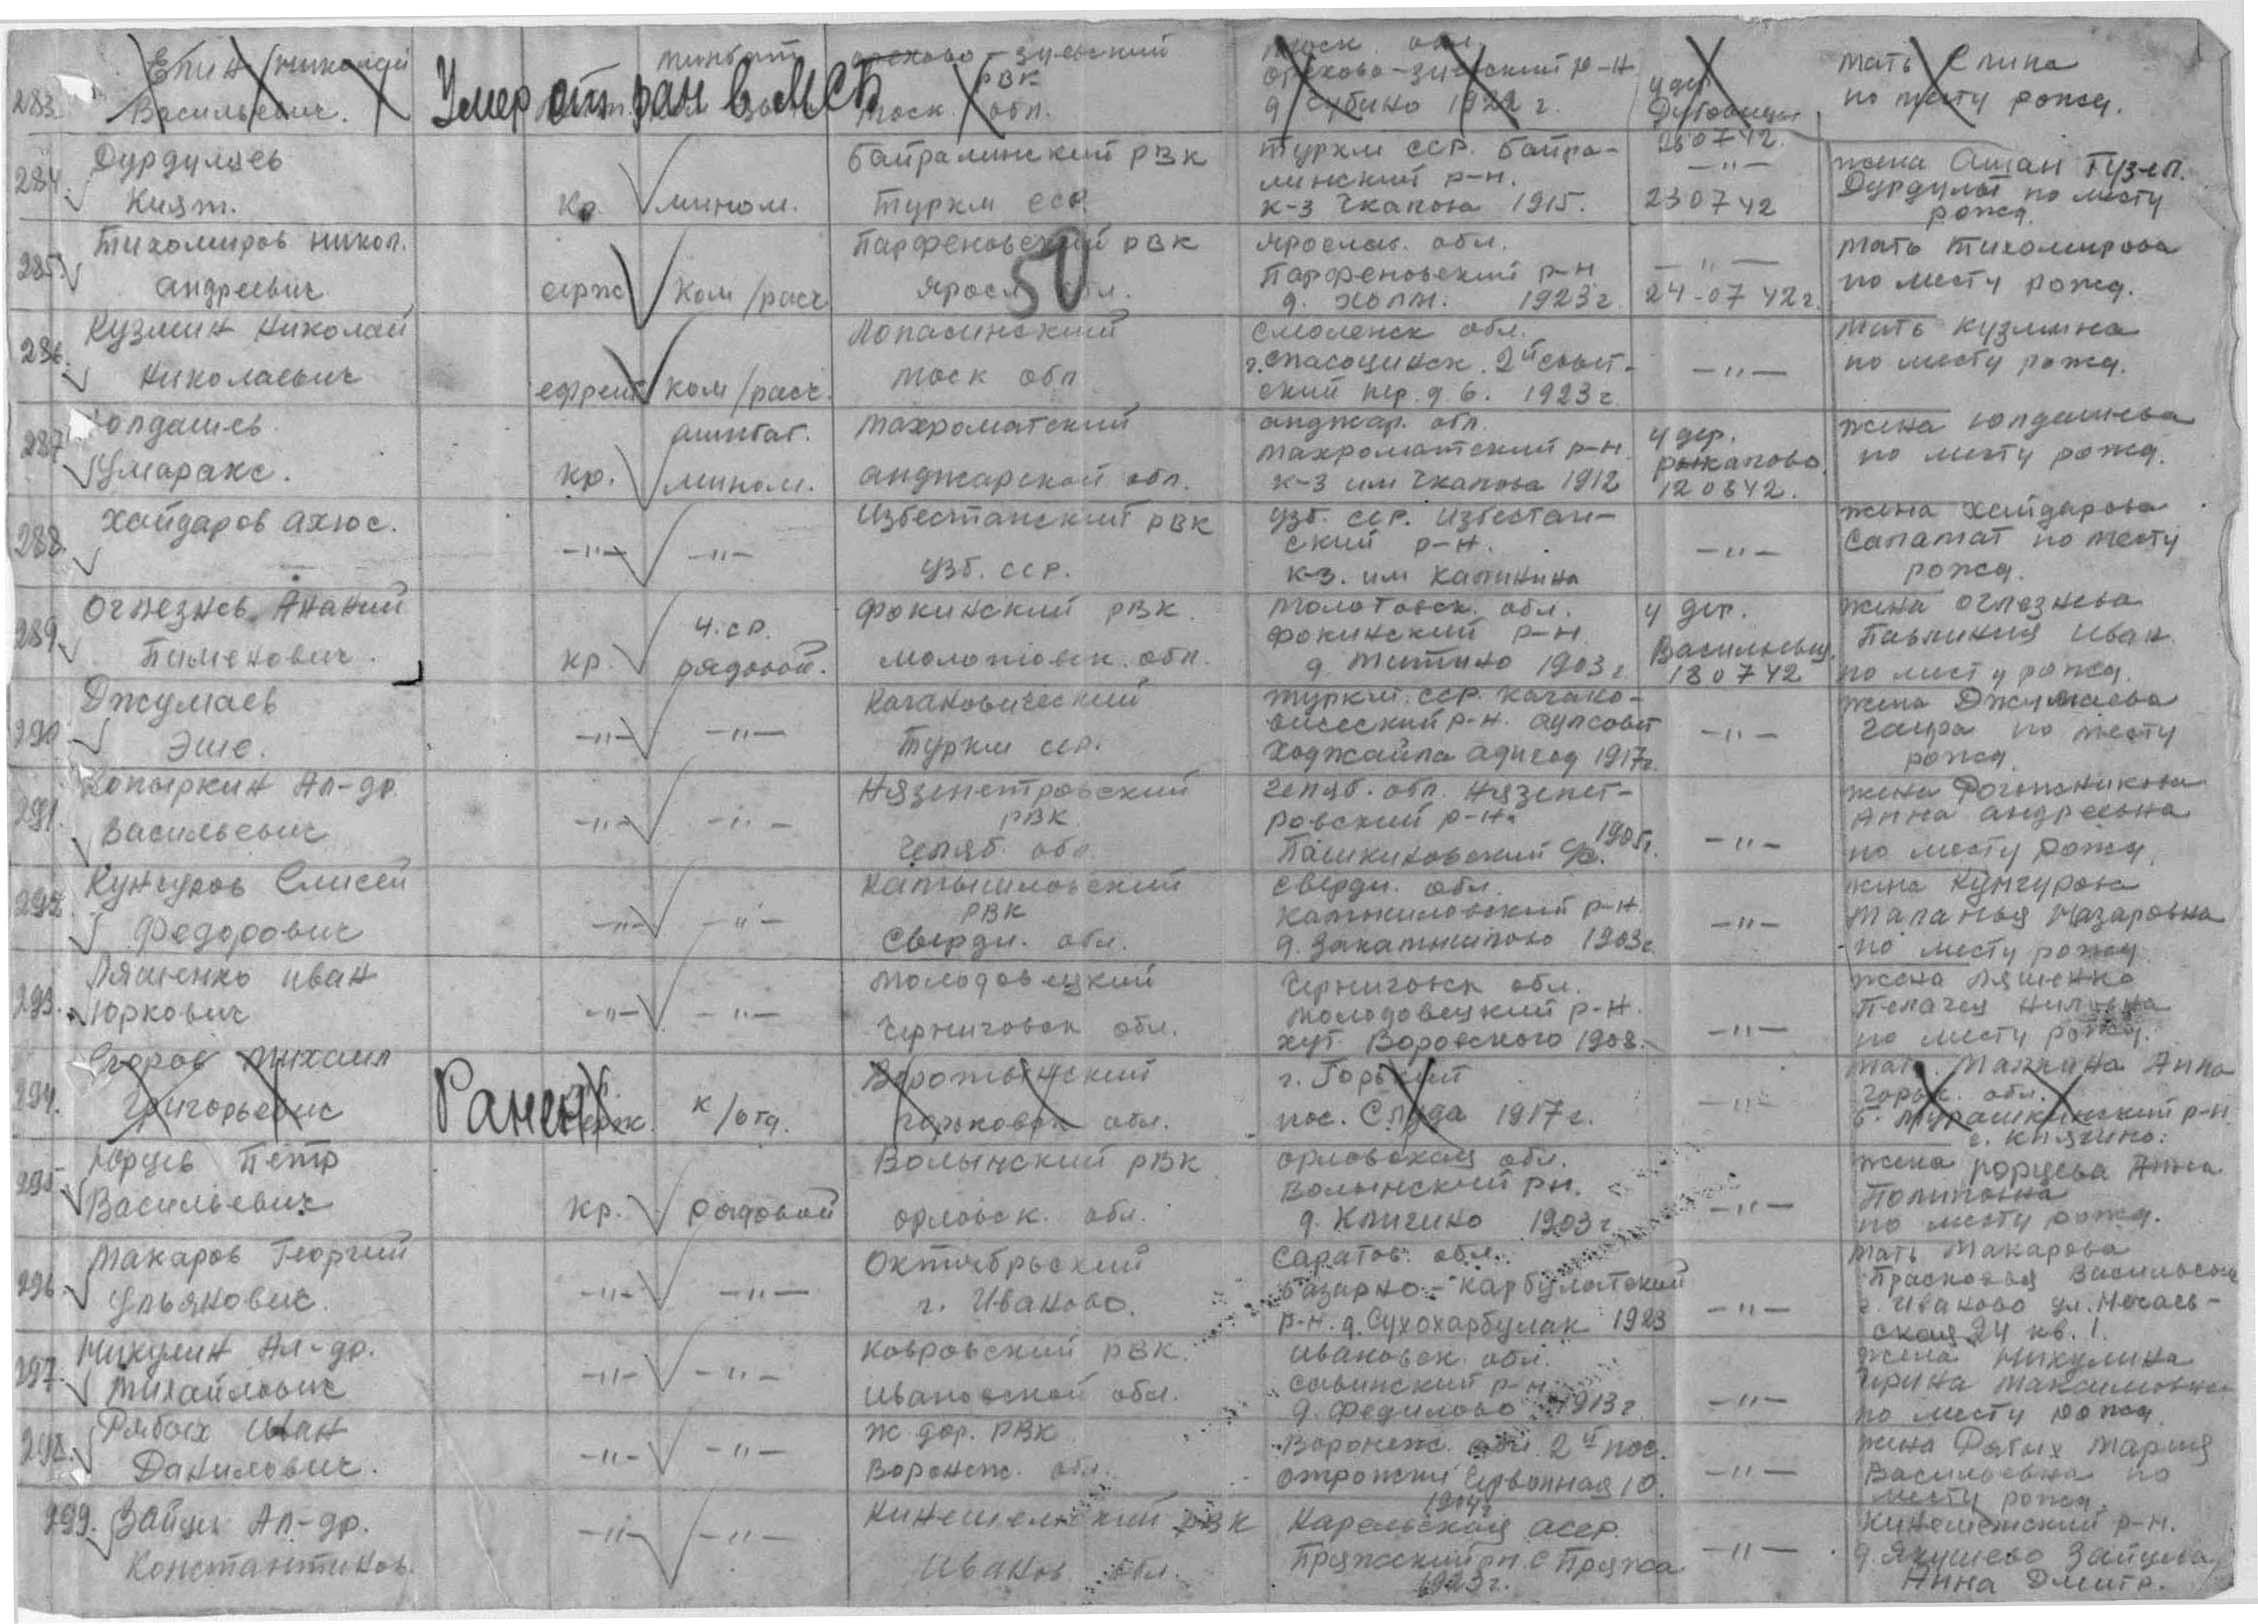 283. Елин Николай Васильевич. Умер от ран в МСБ минбат Орехово-Зуевский РВК Моск. обл. Моск. обл. Орехово-Зуевский р-н д. Губино 1922 г. у дер. Дубовицы 26 07 42. мать Елина по месту рожд.
284. Дурдулаев Кият. кр. мином. Байралинский РВК Туркм ССР. Туркм ССР. Байра-
линский р-н. к-з Чкалова 1915. -"- 23 07 42 жена Ашан Гузел. Дурдулы по месту рожд.
285. Тихомиров Никол. Андреевич серж ком/расч Парфеновский РВК Яросл. обл. 50 Ярослав. обл. Парфеновский р-н д. Холм. 1923 г -"- 24-07 42 г. мать Тихомирова по месту рожд.
286. Кузмин Николай Николаевич ефрейт ком/расч. Лопасинский Моск обл Смоленск обл. г. Спасоцинск. 2й Совет-
ский пер. д 6. 1923 г. -"- мать Кузмина по месту рожд.
287. Юлдашев Умаракс. кр. минбат. мином. Махроматский Анджарской обл. Анджар. обл. Махроматский р-н. к-з им Чкалова 1912 у дер. Рыкалово. 12 08 42. жена Юлдашева по месту рожд.
288. Хайдаров Ахюс. -"- -"- Избестанский РВК Узб. ССР. Узб. ССР. Избестан-
ский р-н. к-з. им Калинина -"- жена Хайдарова Саламат по месту рожд.
289. Оглезнев Ананий Пименович. кр. ч. ср. рядовой. Фокинский РВК. Молотовск. обл. Молотовск. обл. Фокинский р-н д. Митино 1903 г у дер. Васильевщ. 18 07 42 жена Оглезнева Павлиния Иван по месту рожд.
290. Джумаев Эше. -"- -"- Кагановический Туркм ССР. Туркм. ССР. Кагано-
вический р-н. аулсовет Ходжайла 1917 г. -"- жена Джумаева по месту рожд.
291. Копыркин Ал-др. Васильевич -"- -"- Нязепетровский РВК. Челяб. обл. Челяб. обл. Нязепет-
ровский р-н. Пашкиновский с/с. 1905 г. -"- жена Рогожникова Анна Андреевна по месту рожд.
292. Кунгуров Елисей Федорович -"- -"- Камышловский РВК Свердл. обл. Свердл. обл. Камышловский р-н. д. Закамышлово 1903 г. -"- жена Кунгурова Маланья Назаровна по месту рожд
293. Ляшенко Иван Юркович -"- -"- Молодовецкий Черниговск обл. Черниговск обл. Молодовецкий р-н. хут. Воровского 1908. -"- жена Ляшенко Пелагея Ниловна по месту рожд.
294. Егоров Михаил Григорьевич Ранен серж. к/отд. Воротынский Горьковск обл. г. Горький пос. Слуда 1917 г. -"- мать. Маякина Анна Горьк. обл. Б. Мурашкинский р-н. с. Княгино.
295. Юрцев Пётр Васильевич кр. рядовой Волынский РВК Орловск. обл. Орловская обл. Волынский рн. д. Кличино 1903 г -"- жена Юрцева Анна по месту рожд.
296. Макаров Георгий Ульянович. -"- -"- Октябрьский г. Иваново. Саратов. обл. Базарно-Карбулатский р-н. д. Сухохарбулак 1923 -"- мать Макарова Прасковья Васильевна г. Иваново ул. Ногаев-
ская 24 кв. 1.
297. Никулин Ал-др. Михайлович -"- -"- Ковровский РВК. Ивановской обл. Ивановск. обл. Савинский р-н д. Федилово 1913 г -"- жена Никулина Ирина Максимовна по месту рожд
298. Рябых Иван Данилович. -"- -"- Ж дор. РВК Воронеж. обл. Воронеж. обл. 2й пос. Отрожки Червонная 10. 1904 г -"- жена Рябых Мария Васильевна по месту рожд.
299. Зайцев Ал-др. Константинов. -"- -"- Кинешемский РВК Иванов обл. Карельская АССР. Пряжский рн. с Пряжа 1923 г. -"- Кинешемский р-н. д. Якушево Зайцева Анна Дмитр.